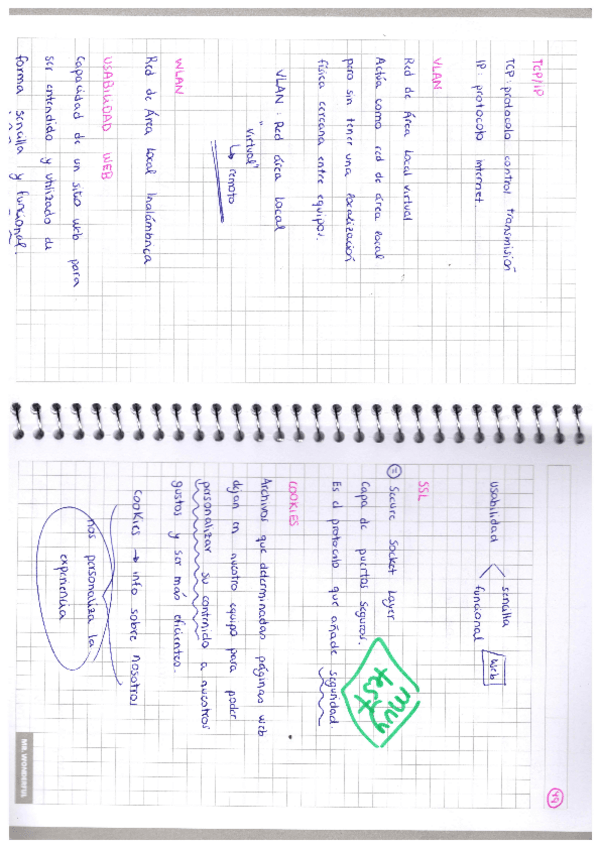 TCP/IP
TCP: protocolo control transmisión
IP: protocolo internet.
VLAN
Red de Área Local virtual
Actúa como red de área local
pero sin tener una localización
física cercana entre equipos.
VLAN: Red área local
"virtual"
↳ remoto
WLAN
Red de Área Local Inalámbrica
USABILIDAD WEB
Capacidad de un sitio web para
ser entendido y utilizado de
forma sencilla y funcional.
49
usabilidad < sencilla
funcional
Web
SSL
= Secure Socket Layer
Capa de puertos seguros.
Es el protocolo que añade seguridad.
muy
test
COOKIES
Archivos que determinadas páginas web
dejan en nuestro equipo para poder
personalizar su contenido a nuestros
gustos y ser más eficientes.
Cookies → info sobre nosotros
nos personaliza la
experiencia
MR. WONDERFUL